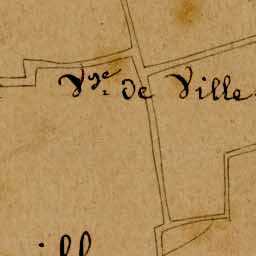 Vge. de Ville
ill